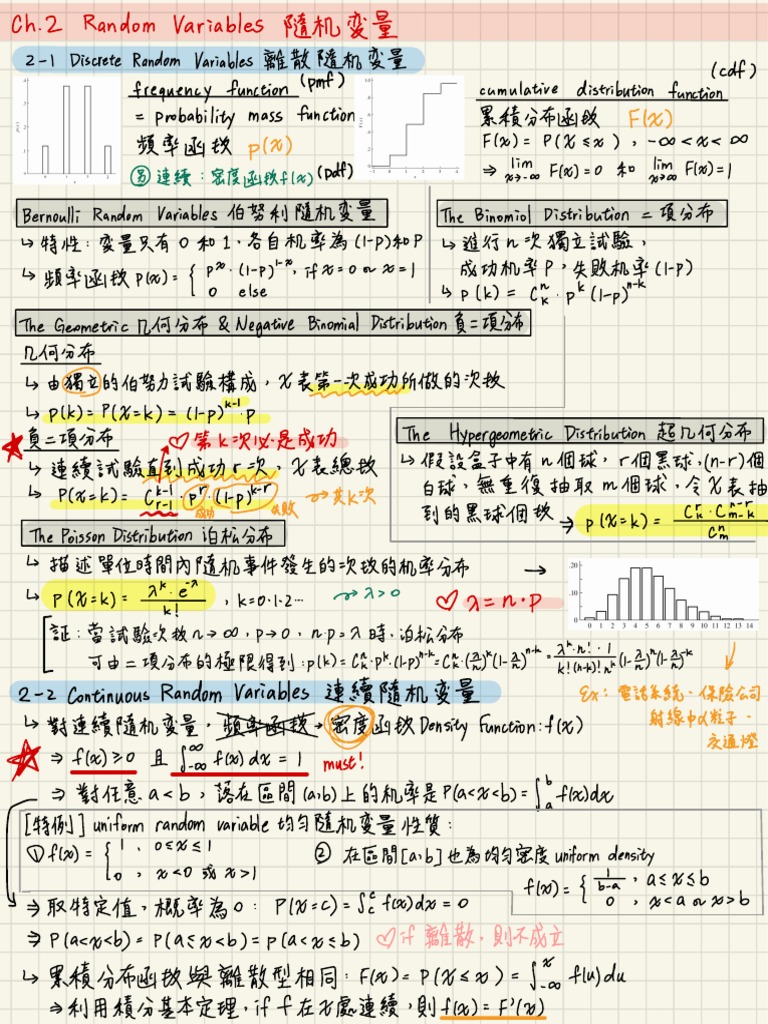 Ch.2 Random Variables 隨机変量
2-1 Discrete Random Variables 離散隨机変量
frequency function (pmf)
= probability mass function
頻率函數 p(x)
連續:密度函數f(x) (pdf)
(cdf)
cumulative distribution function
累積分布函數 F(x)
F(x) = P(X≤x) , -∞<x<∞
⇒ lim x→-∞ F(x)=0 和 lim x→∞ F(x)=1
Bernoulli Random Variables 伯努利隨机変量
↳ 特性:変量只有 0 和 1、各自机率為 (1-p)和 P
↳ 頻率函數 p(x) = { p^x · (1-p)^{1-x}, if x=0 or x=1
0 else
The Binomiol Distribution 二項分布
↳ 進行 n 次獨立試驗,
成功机率 P, 失敗机率 (1-p)
↳ p(k) = C^n_k · p^k (1-p)^{n-k}
The Geometric 几何分布 & Negative Binomial Distribution 負二項分布
几何分布
↳ 由獨立的伯努力試驗構成, X表第一次成功所做的次數
↳ p(k) = P(X=k) = (1-p)^{k-1} · p
負二項分布 ♡ 第 k 次必是成功
↳ 連續試驗直到成功 r 次, X表總數
↳ P(X=k) = C^{k-1}_{r-1} p^r (1-p)^{k-r} → 共k次
成功 失敗
The Hypergeometric Distribution 超几何分布
↳ 假設盒子中有 n 個球, r 個黑球, (n-r)個
白球, 無重復抽取 m 個球, 令X表抽
到的黑球個數 ⇒ p(X=k) = C^r_k · C^{n-r}_{m-k} / C^n_m
The Poisson Distribution 泊松分布
↳ 描述單位時間內隨機事件發生的次數的机率分布 →
↳ P(X=k) = λ^k · e^{-λ} / k! , k=0·1·2… → λ>0 ♡ λ=n·p
.20
.10
0
0 1 2 3 4 5 6 7 8 9 10 11 12 13 14
証:當試驗次數 n→∞, p→0, n·p=λ 時, 泊松分布
可由二項分布的極限得到: p(k) = C^n_k · p^k · (1-p)^{n-k} = C^n_k · (λ/n)^k (1-λ/n)^{n-k} = λ^k · n! · 1 / k!(n-k)! n^k (1-λ/n)^n (1-λ/n)^{-k}
Ex: 電話系統、保險公司
射線中α粒子、
交通燈
2-2 Continuous Random Variables 連續隨机変量
↳ 對連續隨机変量, 頻率函數→密度函數 Density Function: f(x)
⇒ f(x) ≥0 且 ∫_{-∞}^{∞} f(x) dx = 1 must!
⇒ 對任意 a<b, 落在區間 (a,b)上的机率是 P(a<x<b) = ∫_a^b f(x)dx
[特例] uniform random variable 均匀隨机変量性質:
① f(x) = { 1, 0≤x≤1
0, x<0 或 x>1
② 在區間[a,b]也為均匀密度 uniform density
f(x) = { 1/(b-a), a≤x≤b
0, x<a or x>b
⇒ 取特定值, 概率為 0: P(X=c) = ∫_c^c f(x)dx = 0
⇒ P(a<x<b) = P(a≤x<b) = p(a<x≤b) ♡ if 離散, 則不成立
↳ 累積分布函數與離散型相同: F(x) = P(X≤x) = ∫_{-∞}^x f(u)du
⇒ 利用積分基本定理, if f 在 x 處連續, 則 f(x) = F'(x)